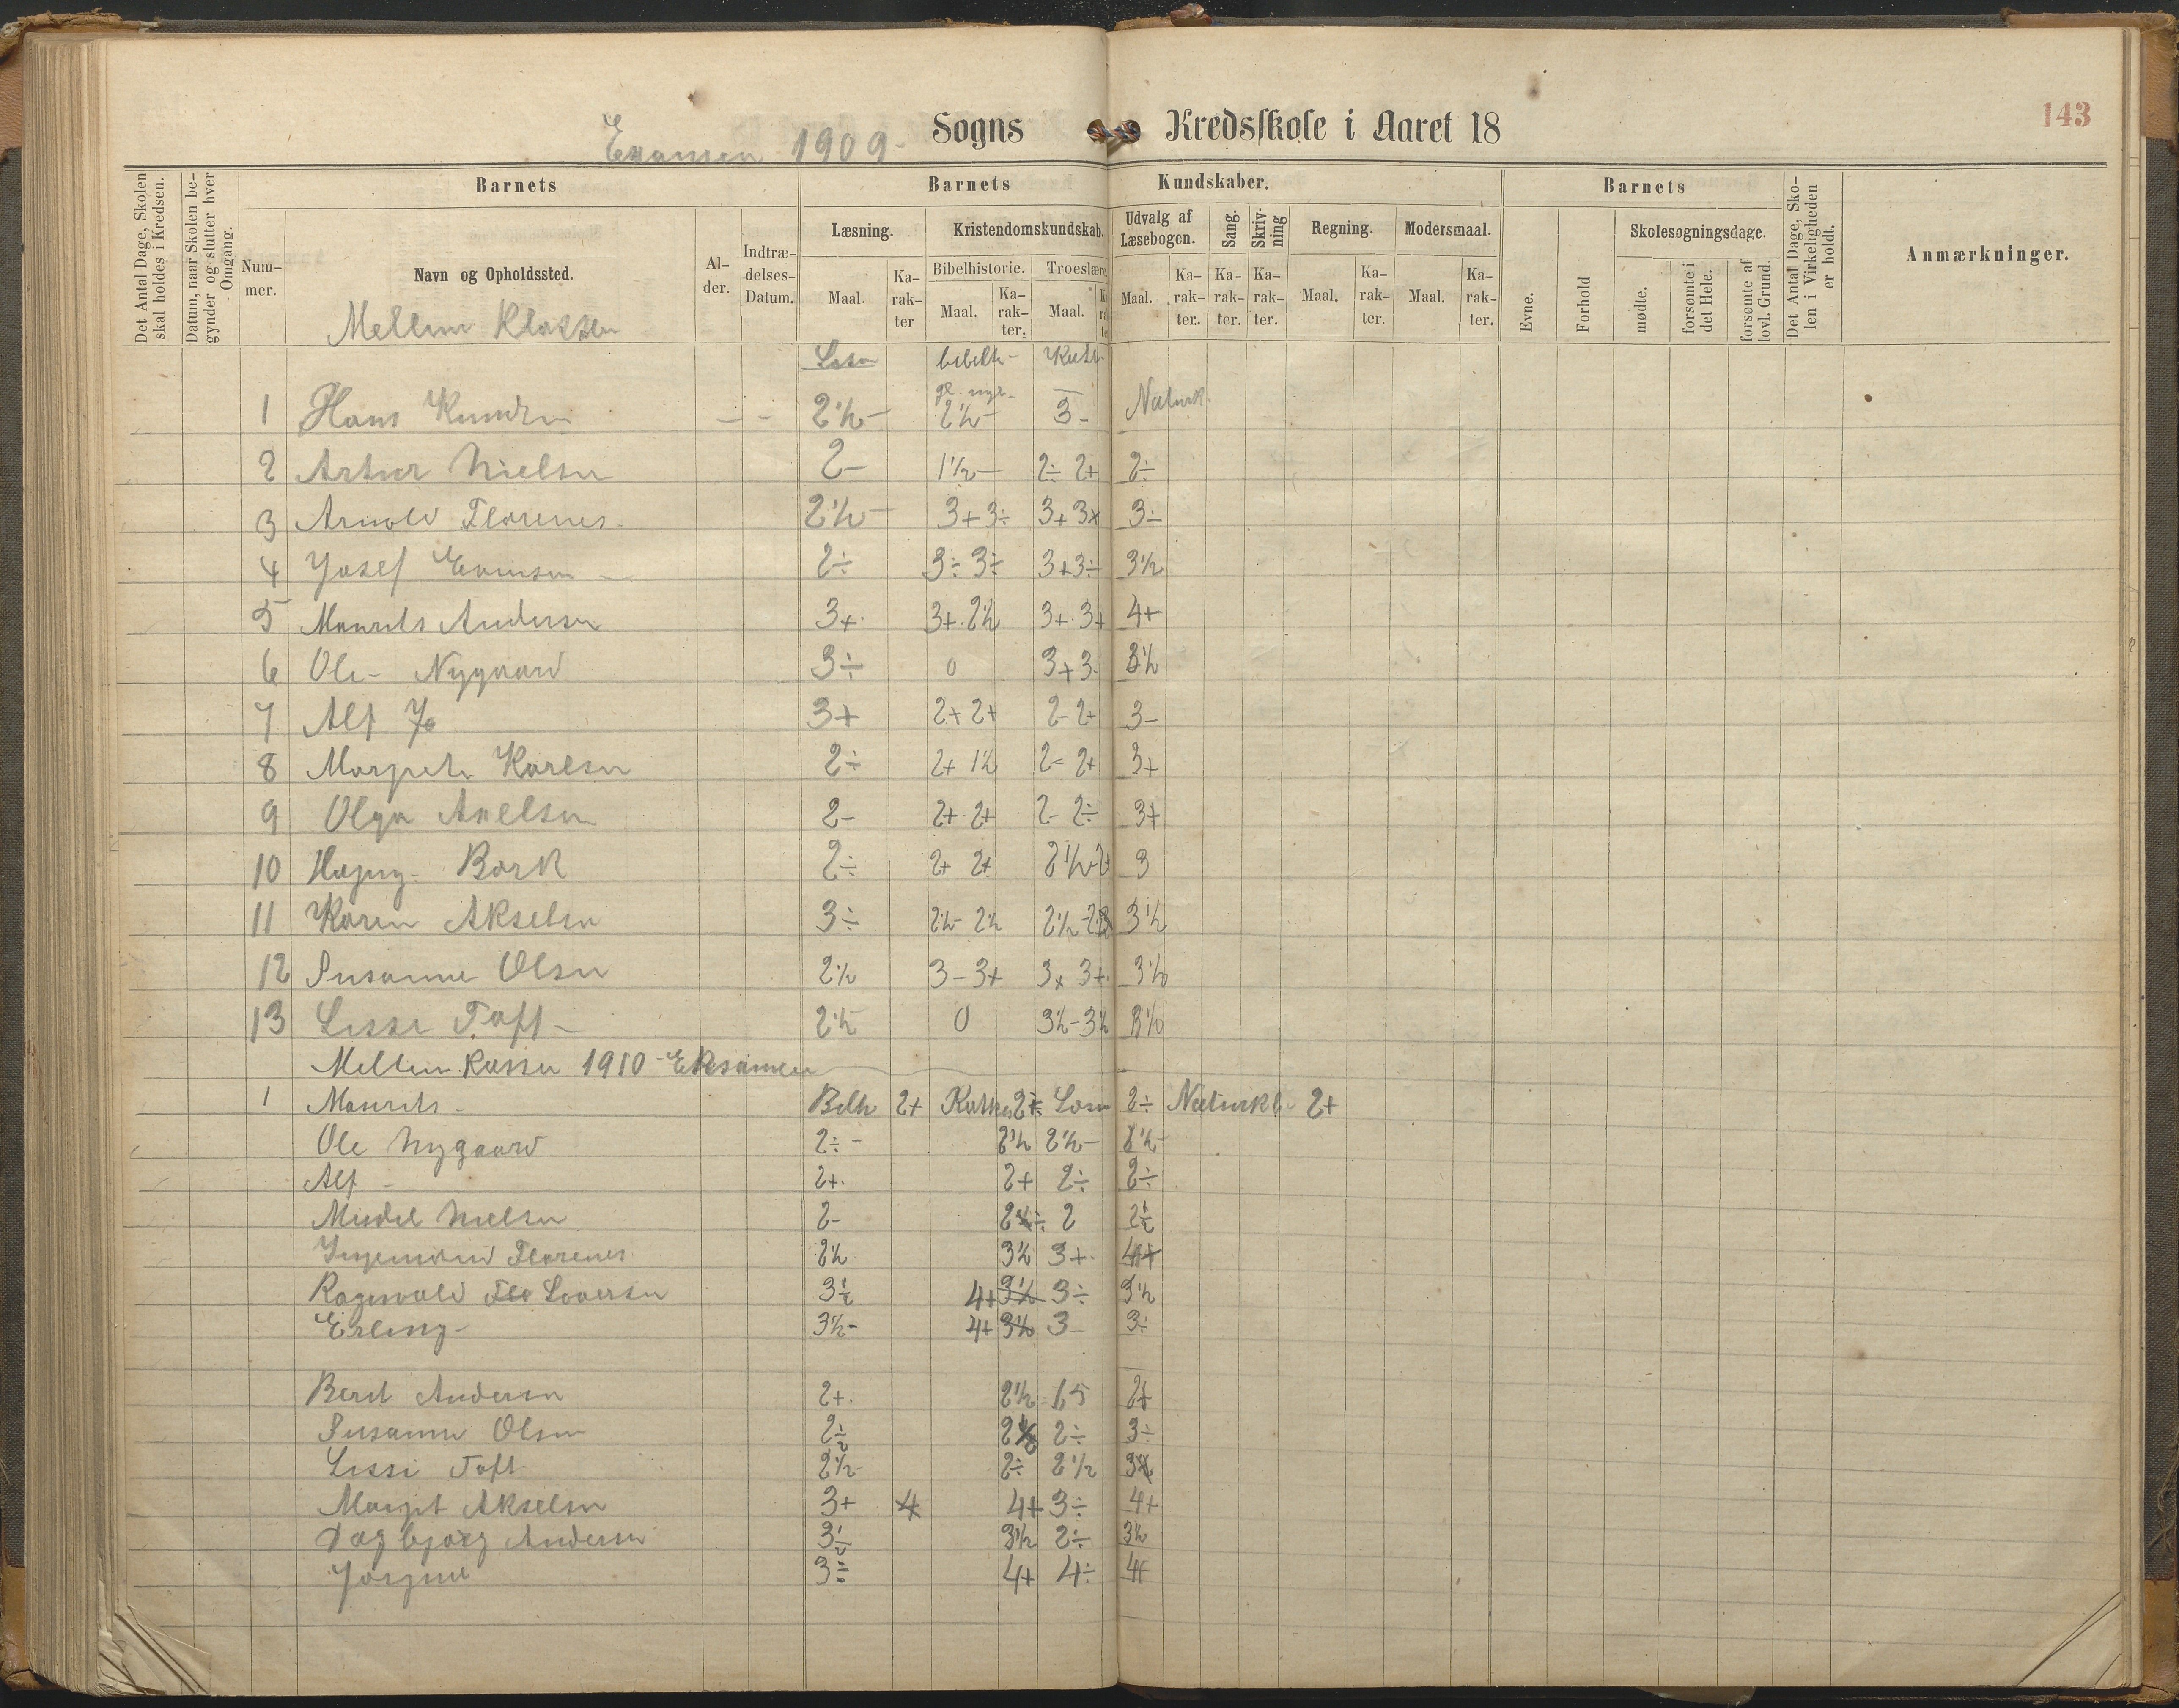 143
Examen 1909 Sogns Kredsskole i Aaret 18
Det Antal Dage, Skolen skal holdes i Kredsen.
Datum, naar Skolen begynder og slutter hver Omgang.
Barnets Barnets Kundskaber. Barnets
Det Antal Dage, Skolen i Virkeligheden er holdt.
Anmærkninger.
Nummer. Navn og Opholdssted. Alder. Indtrædelses-Datum.
Læsning. Kristendomskundskab. Udvalg af Læsebogen. Sang. Skrivning Regning. Modersmaal.
Bibelhistorie. Troeslære
Evne. Forhold Skolesøgningsdage.
mødte. forsømte i det Hele. forsømte af lovl. Grund.
Maal. Karakter Maal. Karakter. Maal. Maal. Karakter. Karakter. Karakter. Maal. Karakter. Maal. Karakter.
Mellem Klassen
1 Hans 2½- 2½- 3-
2 Artur Nielsen 2- 1½- 2÷ 2+ 2÷
3 Arnold Florenes 2½- 3+ 3÷ 3+ 3+ 3÷
4 Josef 2÷ 3÷ 3÷ 3+ 3÷ 3½
5 Maurits Andersen 3+ 3+ 2½ 3+ 3+ 4+
6 Ole Nygaard 3÷ 0 3+ 3- 3½
7 Alf 3+ 2+ 2+ 2- 2+ 3-
8 Margrete Karlsen 2÷ 2+ 1½ 2- 2+ 3+
9 Olga 2- 2+ 2+ 2- 2÷ 3+
10 Bork 2÷ 2+ 2+ 2½ 2+ 3
11 Karen Akselsen 3÷ 2½- 2½ 2½ 3½
12 Susanne Olsen 2½ 3- 3+ 3+ 3+ 3½
13 Lissi Toft 2½ 0 3½- 3½ 3½
Mellem Kassen 1910 - Eksamen
1 Maurits - Belh 2+ 2÷ 2÷ 2+
Ole Nygaard 2÷ - 2½ 2½- 2½-
Alf - 2+ 2+ 2÷ 2÷
Nielsen 2- 2÷ 2 2½
Ingemand Florenes 2½ 3½ 3+ 4+
Ragnvald 3½ 4+ 3½ 3÷ 3½
Erling - 3½- 4+ 3½ 3- 3÷
Berit Andersen 2+ 2½ 1,5 2+
Susanne Olsen 2½ 2½ 2÷ 3÷
Lissi Toft 2½- 2÷ 2½
Margit Akselsen 3+ 4 4+ 3÷ 4+
Dagbjørg Andersen 3½ 3½ 2÷ 3½
Jørgine 3÷ 4+ 4÷ 4+